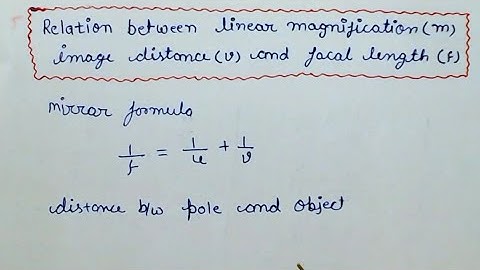 Relation between linear magnification (m)
image distance (v) and focal length (f)
mirrar formula
1/f = 1/u + 1/v
distance b/w pole and object